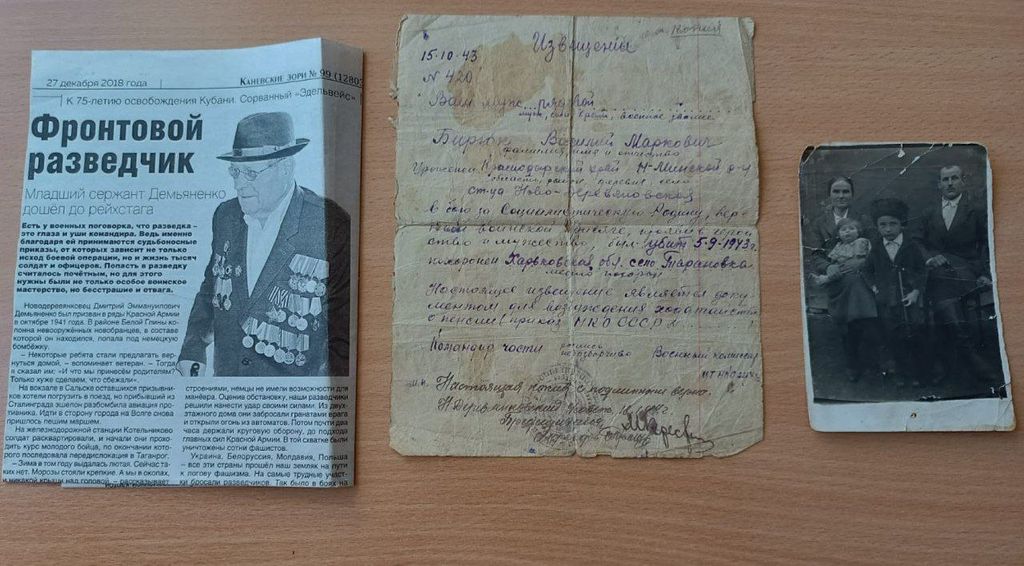 27 декабря 2018 года
КАНЕВСКИЕ ЗОРИ № 99 (1280
К 75-летию освобождения Кубани. Сорванный «Эдельвейс»
Фронтовой
разведчик
Младший сержант Демьяненко
дошёл до рейхстага
Есть у военных поговорка, что разведка -
это глаза и уши командира. Ведь именно
благодаря ей принимаются судьбоносные
приказы, от которых зависит не только
исход боевой операции, но и жизнь тысяч
солдат и офицеров. Попасть в разведку
считалось почётным, но для этого
нужны были не только особое воинское
мастерство, но бесстрашие и отвага.
Новодеревянковец Дмитрий Эммануилович
Демьяненко был призван в ряды Красной Армии
в октябре 1941 года. В районе Белой Глины ко-
лонна невооружённых новобранцев, в составе
которой он находился, попала под немецкую
бомбёжку.
– Некоторые ребята стали предлагать вер-
нуться домой, – вспоминает ветеран. – Тогда
я сказал им: «И что мы принесём родителям?
Только хуже сделаем, что сбежали».
На вокзале в Сальске оставшихся призывни-
ков хотели погрузить в поезд, но прибывший из
Сталинграда эшелон разбомбила авиация про-
тивника. Идти в сторону города на Волге снова
пришлось пешим маршем.
На железнодорожной станции Котельниково
солдат расквартировали, и начали они прохо-
дить курс молодого бойца, по окончании кото-
рого последовала передислокация в Таганрог.
– Зима в том году выдалась лютая. Сейчас та-
ких нет. Морозы стояли крепкие. А мы в окопах,
и никакой крыши над головой, – рассказывает
строениями, немцы не имели возможности для
манёвра. Оценив обстановку, наши разведчики
решили нанести удар своими силами. Из двух-
этажного дома они забросали гранатами врага
и открыли огонь из автоматов. Потом почти два
часа держали круговую оборону, до подхода
главных сил Красной Армии. В той схватке были
уничтожены сотни фашистов.
Украина, Белоруссия, Молдавия, Польша
– все эти страны прошёл наш земляк на пути
к логову фашизма. На самые трудные участ-
ки бросали разведчиков. Так было в боях на
Извещение
15-10-43
N 420
Ваш муж рядовой
муж, сын, брат, военное звание
Бирюк Василий Маркович
фамилия, имя и отчество
Уроженец Краснодарский край Н-Минской р-н
ст-ца Ново-Деревянковская
в бою за Социалистическую Родину, вер-
ный воинской присяге, проявив герой-
ство и мужество, был убит 5-9-1943 г.
похоронен Харьковская обл. село Тарановка
место похорон
Настоящее извещение является доку-
ментом для возбуждения ходатайства
о пенсии (приказ НКО СССР N
Командир части Военный комиссар
Настоящая копия с подлинным верна.